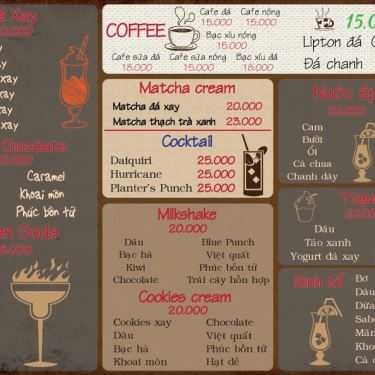 Xay
xay
xay
Chocolate
Caramel
Khoai môn
Phúc bồn tử
COFFEE
Cafe đá
15.000
Cafe nóng
15.000
Bạc xỉu nóng
15.000
Cafe sữa đá
18.000
Cafe sữa nóng
15.000
Bạc xỉu đá
18.000
Matcha cream
Matcha đá xay 20.000
Matcha thạch trà xanh 23.000
Cocktail
Daiquiri 25.000
Hurricane 25.000
Planter's Punch 25.000
Milkshake
20.000
Dâu Blue Punch
Bạc hà Việt quất
Kiwi Phúc bồn tử
Chocolate Trái cây hỗn hợp
Cookies cream
20.000
Cookies xay Chocolate
Dâu Việt quất
Bạc hà Phúc bồn tử
Khoai môn Hạt dẻ
15.0
Lipton đá
Đá chanh
Nước ép
Cam
Bưởi
Ổi
Cà chua
Chanh dây
Dâu
Táo xanh
Yogurt đá xay
Sinh tố
Bơ
Dâu
Dừa
Sabo
Mãn
Khoa
Cà